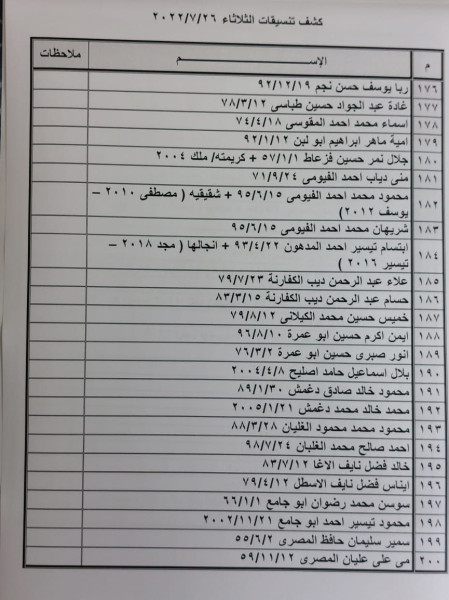 كشف تنسيقات الثلاثاء ٢٠٢٢/٧/٢٦
م الإســـــم ملاحظات
١٧٦ ربا يوسف حسن نجم ٩٢/١٢/١٩
١٧٧ غادة عبد الجواد حسين طباسى ٧٨/٣/١٢
١٧٨ اسماء محمد احمد المقوسى ٧٤/٤/١٨
١٧٩ امية ماهر ابراهيم ابو لبن ٩٢/١/١٢
١٨٠ جلال نمر حسين قزعاط ٥٧/١/١ + كريمته/ ملك ٢٠٠٤
١٨١ منى دياب احمد الفيومى ٧١/٩/٢٤
١٨٢ محمود محمد احمد الفيومى ٩٥/٦/١٥ + شقيقيه ( مصطفى ٢٠١٠ –
يوسف ٢٠١٢ )
١٨٣ شريهان محمد احمد الفيومى ٩٥/٦/١٥
١٨٤ ابتسام تيسير احمد المدهون ٩٣/٤/٢٢ + انجالها ( مجد ٢٠١٨ –
تيسير ٢٠١٦ )
١٨٥ علاء عبد الرحمن ديب الكفارنة ٧٩/٧/٢٣
١٨٦ حسام عبد الرحمن ديب الكفارنة ٨٣/٣/١٥
١٨٧ خميس حسين محمد الكيلانى ٧٩/٨/١٢
١٨٨ ايمن اكرم حسين ابو عمرة ٩٦/٨/١٠
١٨٩ انور صبرى حسين ابو عمرة ٧٦/٣/٢
١٩٠ بلال اسماعيل حامد اصليح ٢٠٠٤/٤/٨
١٩١ محمود خالد صادق دغمش ٨٩/١/٣٠
١٩٢ محمد خالد محمد دغمش ٢٠٠٥/١/٢١
١٩٣ محمود محمد محمود الغلبان ٨٨/٣/٢٨
١٩٤ احمد صالح محمد الغلبان ٩٨/٧/٢٤
١٩٥ خالد فضل نايف الاغا ٨٣/٧/١٢
١٩٦ ايناس فضل نايف الاسطل ٧٩/٤/١٢
١٩٧ سوسن محمد رضوان ابو جامع ٦٦/١/١
١٩٨ محمود تيسير احمد ابو جامع ٢٠٠٢/١١/٢١
١٩٩ سمير سليمان حافظ المصرى ٥٥/٦/٢
٢٠٠ مى على عليان المصرى ٥٩/١١/١٢